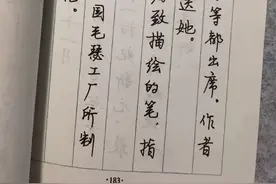 等都出席。作者
送她。
致描绘的笔，指
国毛瑟工厂所制
·183·